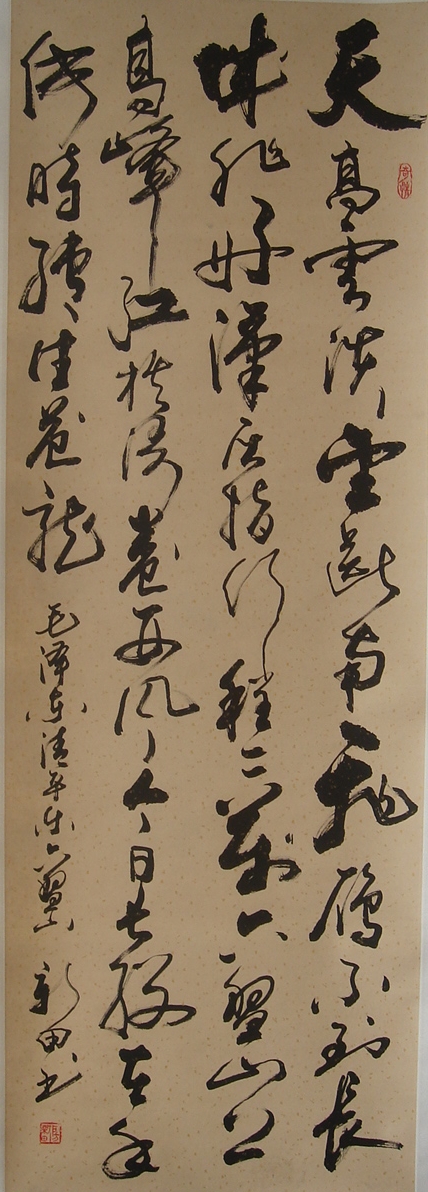 天高雲淡望斷南飛雁不到長
城非好漢屈指行程二萬六盤山上
高峰紅旗漫卷西風今日長纓在手
何時縛住蒼龍 毛澤東清平樂六盤山 新田書